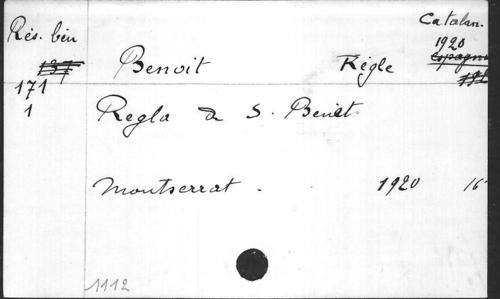 Rés. bén Catalan.
137 1920
171 Benoit Règle espagnol
1 191
Regla de S. Benet
Montserrat. 1920 16
1112